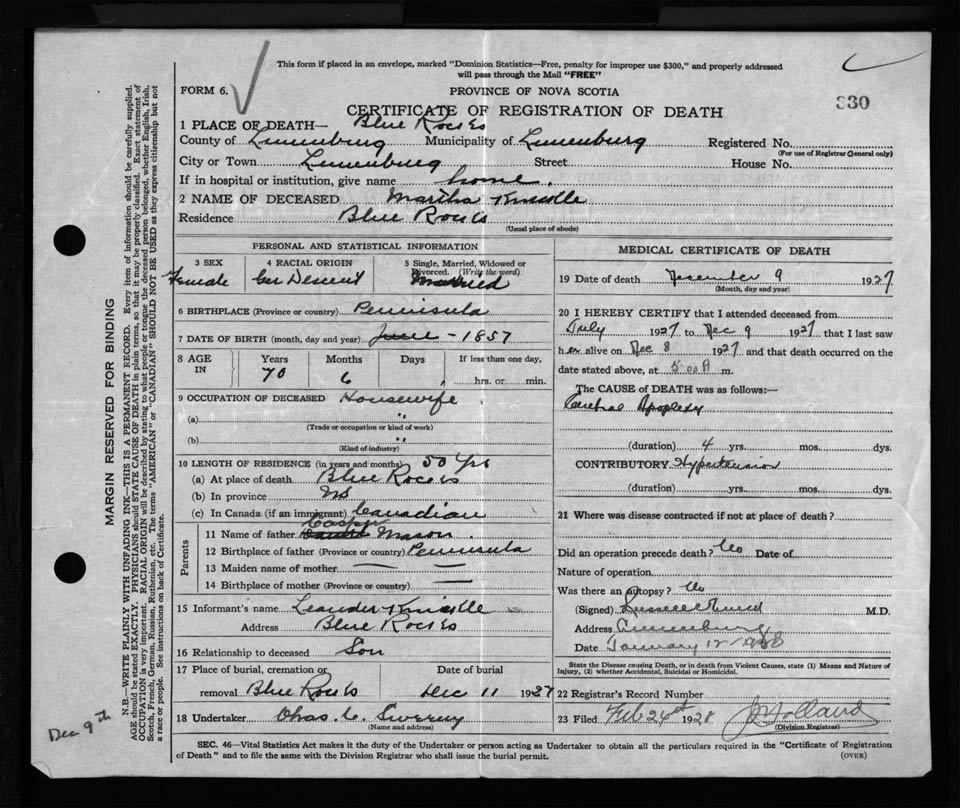 This form if placed in an envelope, marked "Dominion Statistics—Free, penalty for improper use $300," and properly addressed
will pass through the Mail "FREE"
FORM 6.
PROVINCE OF NOVA SCOTIA
330
CERTIFICATE OF REGISTRATION OF DEATH
1 PLACE OF DEATH— Blue Rocks
County of Lunenburg Municipality of Lunenburg Registered No.
(For use of Registrar General only)
City or Town Lunenburg Street House No.
If in hospital or institution, give name home.
2 NAME OF DECEASED Martha Knickle
Residence Blue Rocks
(Usual place of abode)
PERSONAL AND STATISTICAL INFORMATION
3 SEX Female
4 RACIAL ORIGIN Ger Descent
5 Single, Married, Widowed or Divorced. (Write the word) Married
6 BIRTHPLACE (Province or country) Peninsula
7 DATE OF BIRTH (month, day and year) June - 1857
8 AGE IN Years 70 Months 6 Days If less than one day, hrs. or min.
9 OCCUPATION OF DECEASED Housewife
(a) "
(Trade or occupation or kind of work)
(b) "
(Kind of industry)
10 LENGTH OF RESIDENCE (in years and months) 50 Yrs
(a) At place of death Blue Rocks
(b) In province NS
(c) In Canada (if an immigrant) Canadian
Parents
11 Name of father Casper Mason
12 Birthplace of father (Province or country) Peninsula
13 Maiden name of mother —
14 Birthplace of mother (Province or country) —
15 Informant's name Leander Knickle
Address Blue Rocks
16 Relationship to deceased Son
17 Place of burial, cremation or removal Blue Rocks Date of burial Dec 11 1927
18 Undertaker Chas. C. Sweeny
(Name and address)
MEDICAL CERTIFICATE OF DEATH
19 Date of death December 9 1927
(Month, day and year)
20 I HEREBY CERTIFY that I attended deceased from
July 1927 to Dec 9 1927 that I last saw
her alive on Dec 8 1927 and that death occurred on the
date stated above, at 5.00 A m.
The CAUSE of DEATH was as follows:—
Cerebral Apoplexy
(duration) 4 yrs. mos. dys.
CONTRIBUTORY Hypertension
(duration) yrs. mos. dys.
21 Where was disease contracted if not at place of death?
Did an operation precede death? No Date of
Nature of operation
Was there an autopsy? No
(Signed) M.D.
Address Lunenburg
Date January 12 - 1928
State the Disease causing Death, or in death from Violent Causes, state (1) Means and Nature of
Injury, (2) whether Accidental, Suicidal or Homicidal.
22 Registrar's Record Number
23 Filed Feb 24th 1928
(Division Registrar)
SEC. 46—Vital Statistics Act makes it the duty of the Undertaker or person acting as Undertaker to obtain all the particulars required in the "Certificate of Registration
of Death" and to file the same with the Division Registrar who shall issue the burial permit.
(OVER)
MARGIN RESERVED FOR BINDING
N.B.—WRITE PLAINLY WITH UNFADING INK—THIS IS A PERMANENT RECORD. Every item of information should be carefully supplied.
AGE should be stated EXACTLY. PHYSICIANS should STATE CAUSE OF DEATH in plain terms, so that it may be properly classified. Exact statement of
OCCUPATION is very important. RACIAL ORIGIN will be described by stating to what people or tongue the deceased person belonged, whether English, Irish,
Scotch, French, German, Russian, Ruthenian, etc. The terms "AMERICAN" or "CANADIAN" SHOULD NOT BE USED as they express citizenship but not
a race or people. See instructions on back of Certificate.
Dec 9th